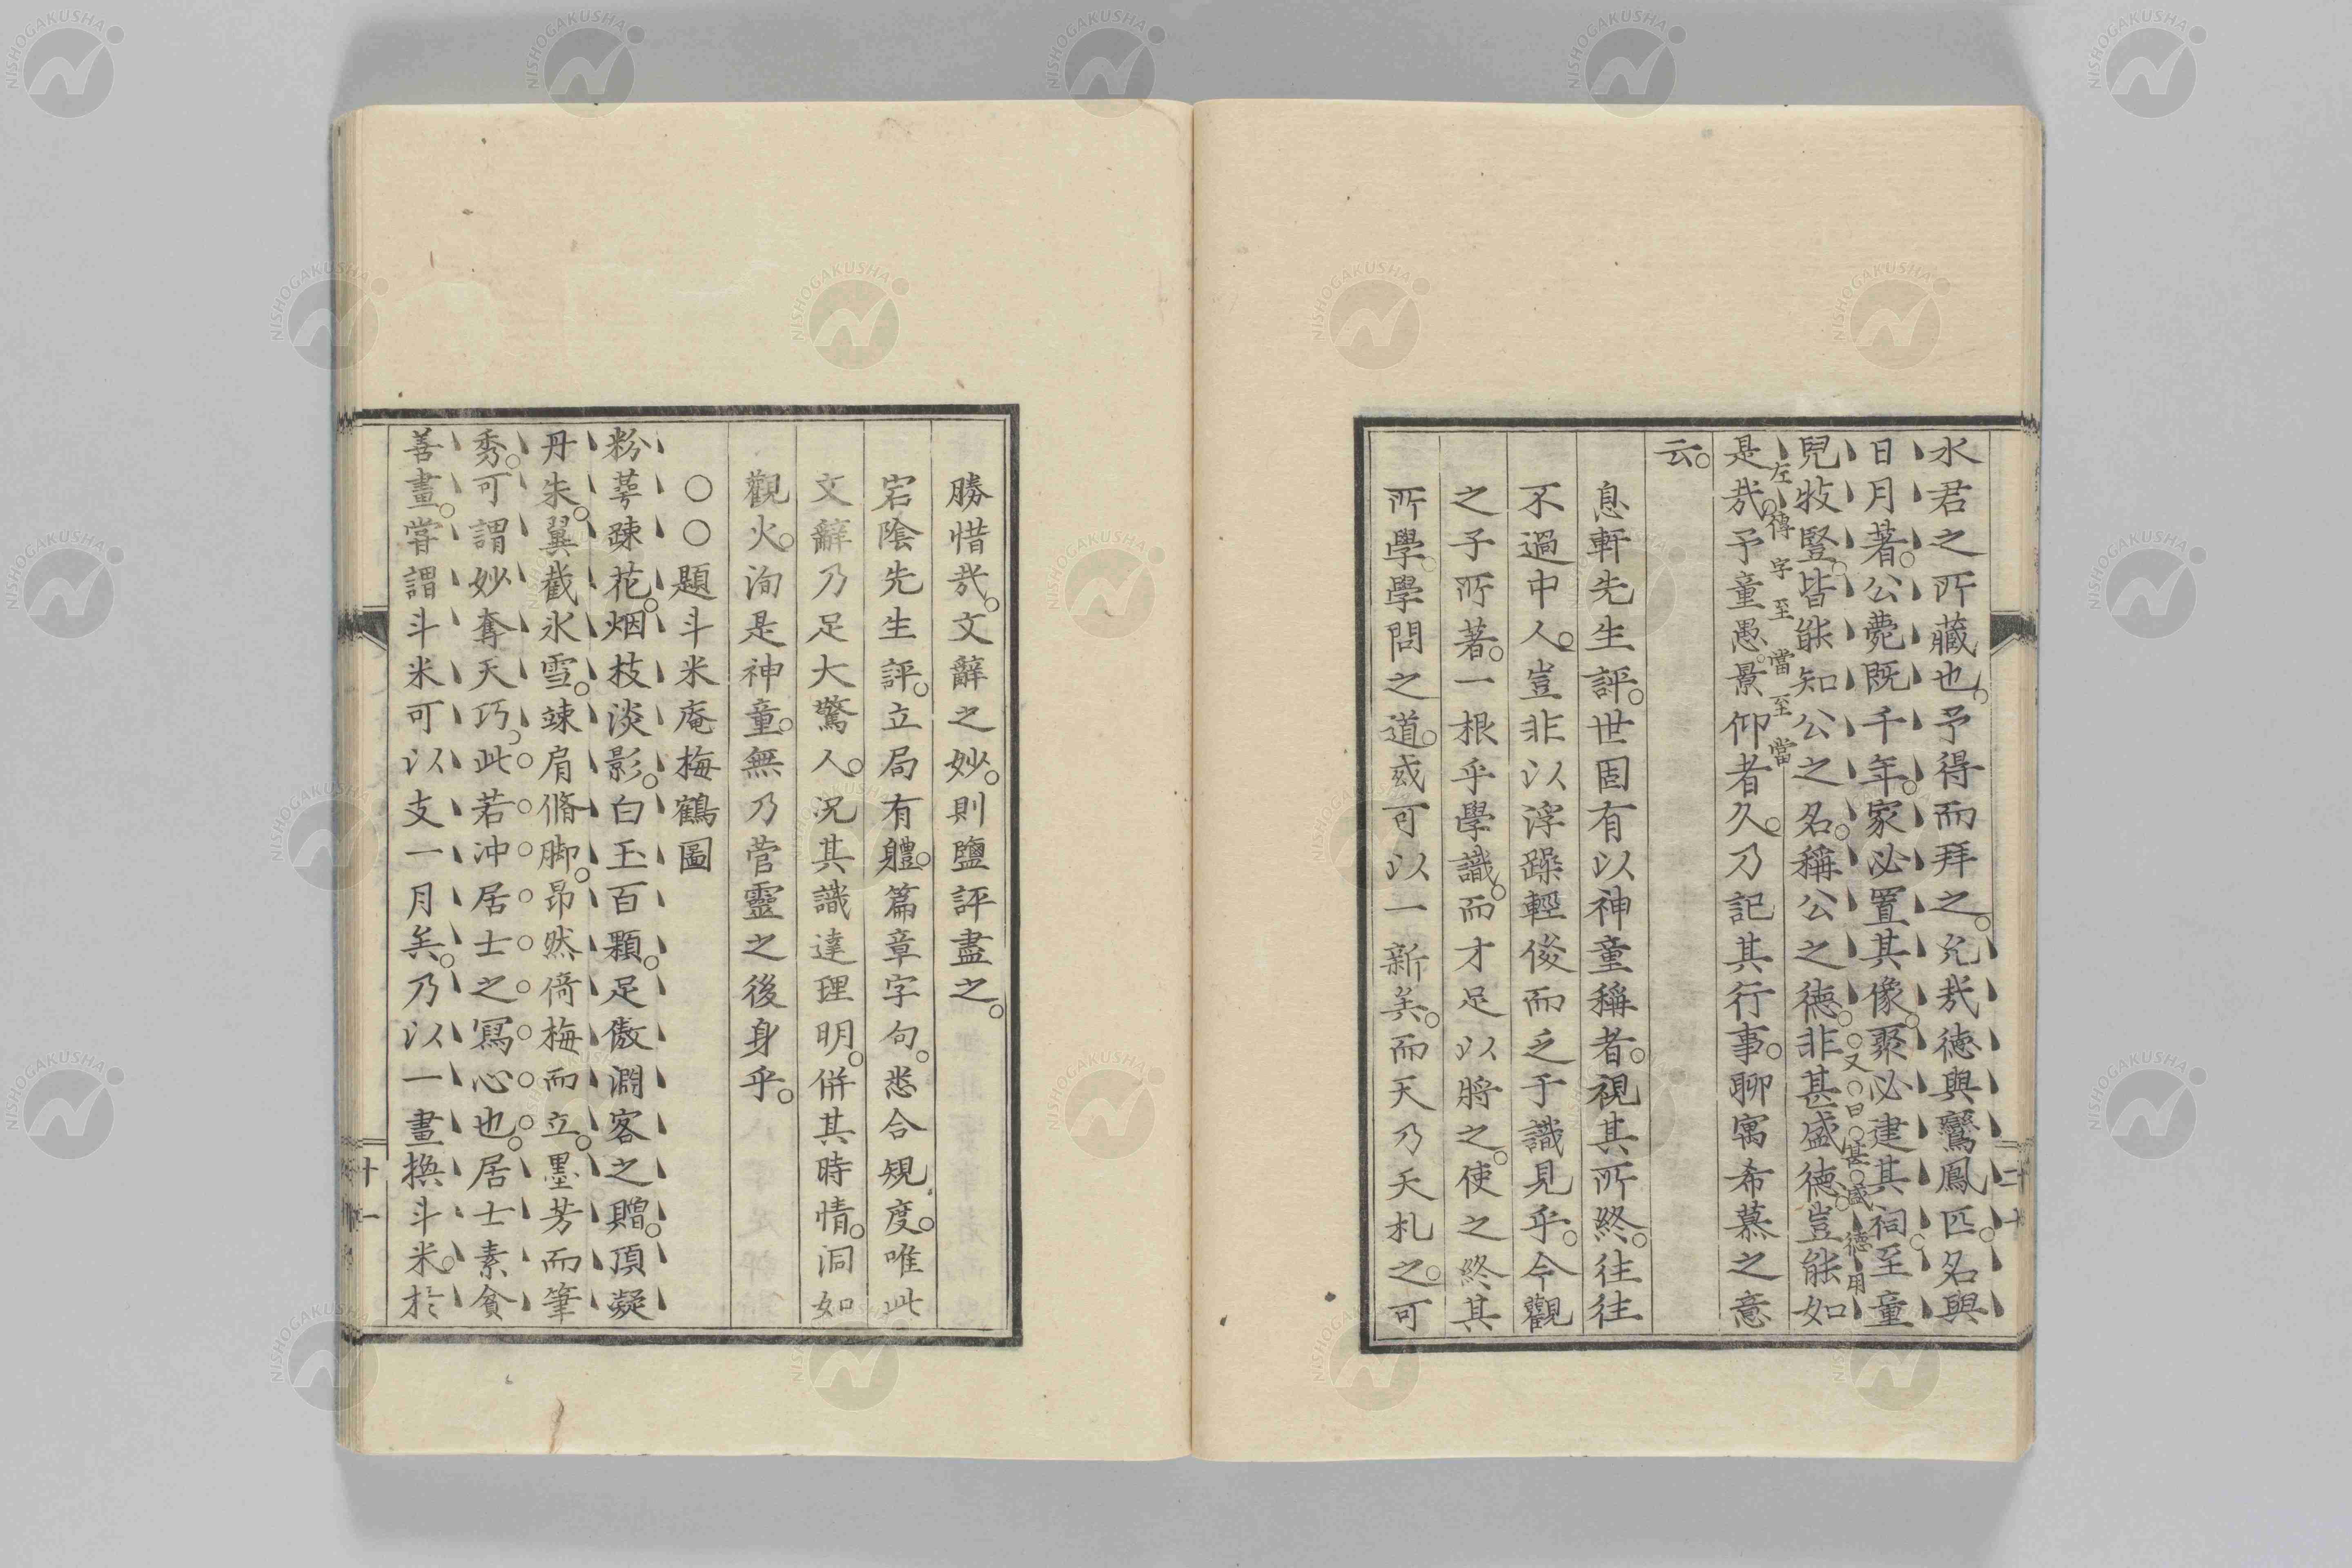 水君之所藏也。予得而拜之。允哉德與鸞鳳匹。名與
日月著。公薨既千年。家必置其像。聚必建其祠。至童
兒牧豎。皆能知公之名。稱公之德。非甚盛德。豈能如
又曰甚盛德用
左傳字至當至當
是哉。予童愚。景仰者久。乃記其行事。聊寓希慕之意
云。
息軒先生評。世固有以神童稱者。視其所終。往往
不過中人。豈非以浮躁輕俊而乏于識見乎。今觀
之子所著。一根乎學識。而才足以將之。使之終其
所學。學問之道。或可以一新矣。而天乃夭札之。可
二十
勝惜哉。文辭之妙。則鹽評盡之。
宕陰先生評。立局有軆。篇章字句。悉合規度。唯此
文辭乃足大驚人。況其識達理明。併其時情。洞如
觀火。洵是神童。無乃菅靈之後身乎。
○○題斗米庵梅鶴圖
粉萼踈花。烟枝淡影。白玉百顆。足傲澗客之贈。頂凝
丹朱。翼截氷雪。竦肩脩脚。昂然倚梅而立。墨芳而筆
秀。可謂妙奪天巧。此若冲居士之寫心也。居士素貧
善畫。嘗謂斗米可以支一月矣。乃以一畫換斗米。於
十一
NISHOGAKUSHA